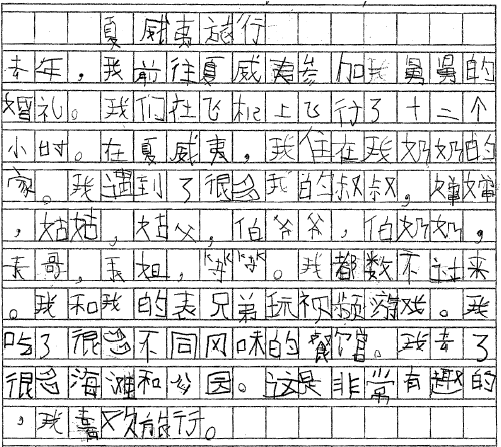 夏威夷旅行
去年，我前往夏威夷参加我舅舅的
婚礼。我们在飞机上飞行了十二个
小时。在夏威夷，我住在我奶奶的
家。我遇到了很多我的叔叔，婶婶
，姑姑，姑父，伯爷爷，伯奶奶，
表哥，表姐，等等。我都数不过来
。我和我的表兄弟玩视频游戏。我
吃了很多不同风味的餐馆。我去了
很多海滩和公园。这是非常有趣的
，我喜欢旅行。